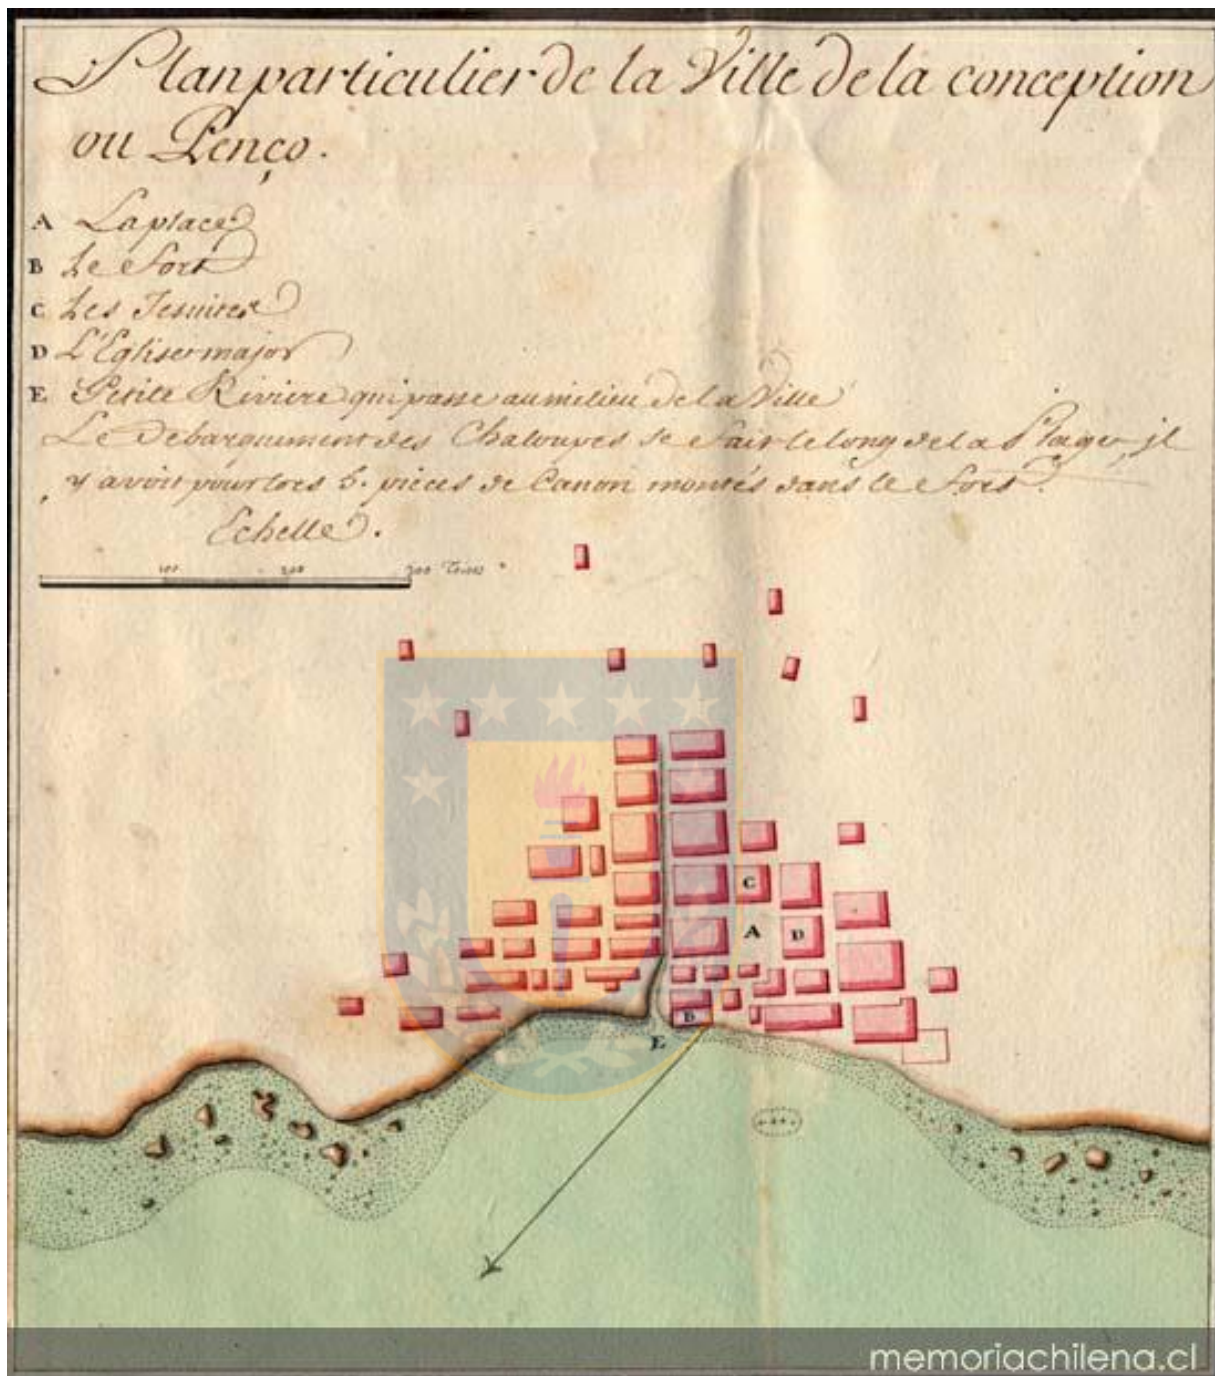 Plan particulier de la Ville de la conception
ou Penço.
A La place
B Le Fort
C Les Jesuites
D L'Eglise major
E Petite Riviere qui passe au milieu de la Ville
Le Debarquement des Chaloupes se fait le long de la Plage, il
y avoit pour lors 5. pieces de Canon montés dans le Fort.
Echelle.
100 200 300 Toises
C
A D
B
E
memoriachilena.cl